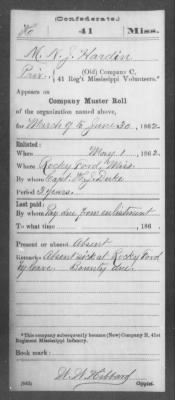 (Confederate.)
H 41 Miss.
M. N. J. Hardin
Priv., (Old) Company C,
41 Reg't Mississippi Volunteers.*
Appears on
Company Muster Roll
of the organization named above,
for March 9 to June 30, 1862.
Enlisted:
When May 1, 1862.
Where Rocky Ford Miss.
By whom Capt. W. J. Duke
Period 3 years.
Last paid:
By whom Pay due from enlistment
To what time , 186 .
Present or absent Absent
Remarks: Absent sick at Rocky Ford
by leave. Bounty due.
*This company subsequently became (New) Company H, 41st
Regiment Mississippi Infantry.
Book mark:
W. W. Hibbard
(642) Copyist.